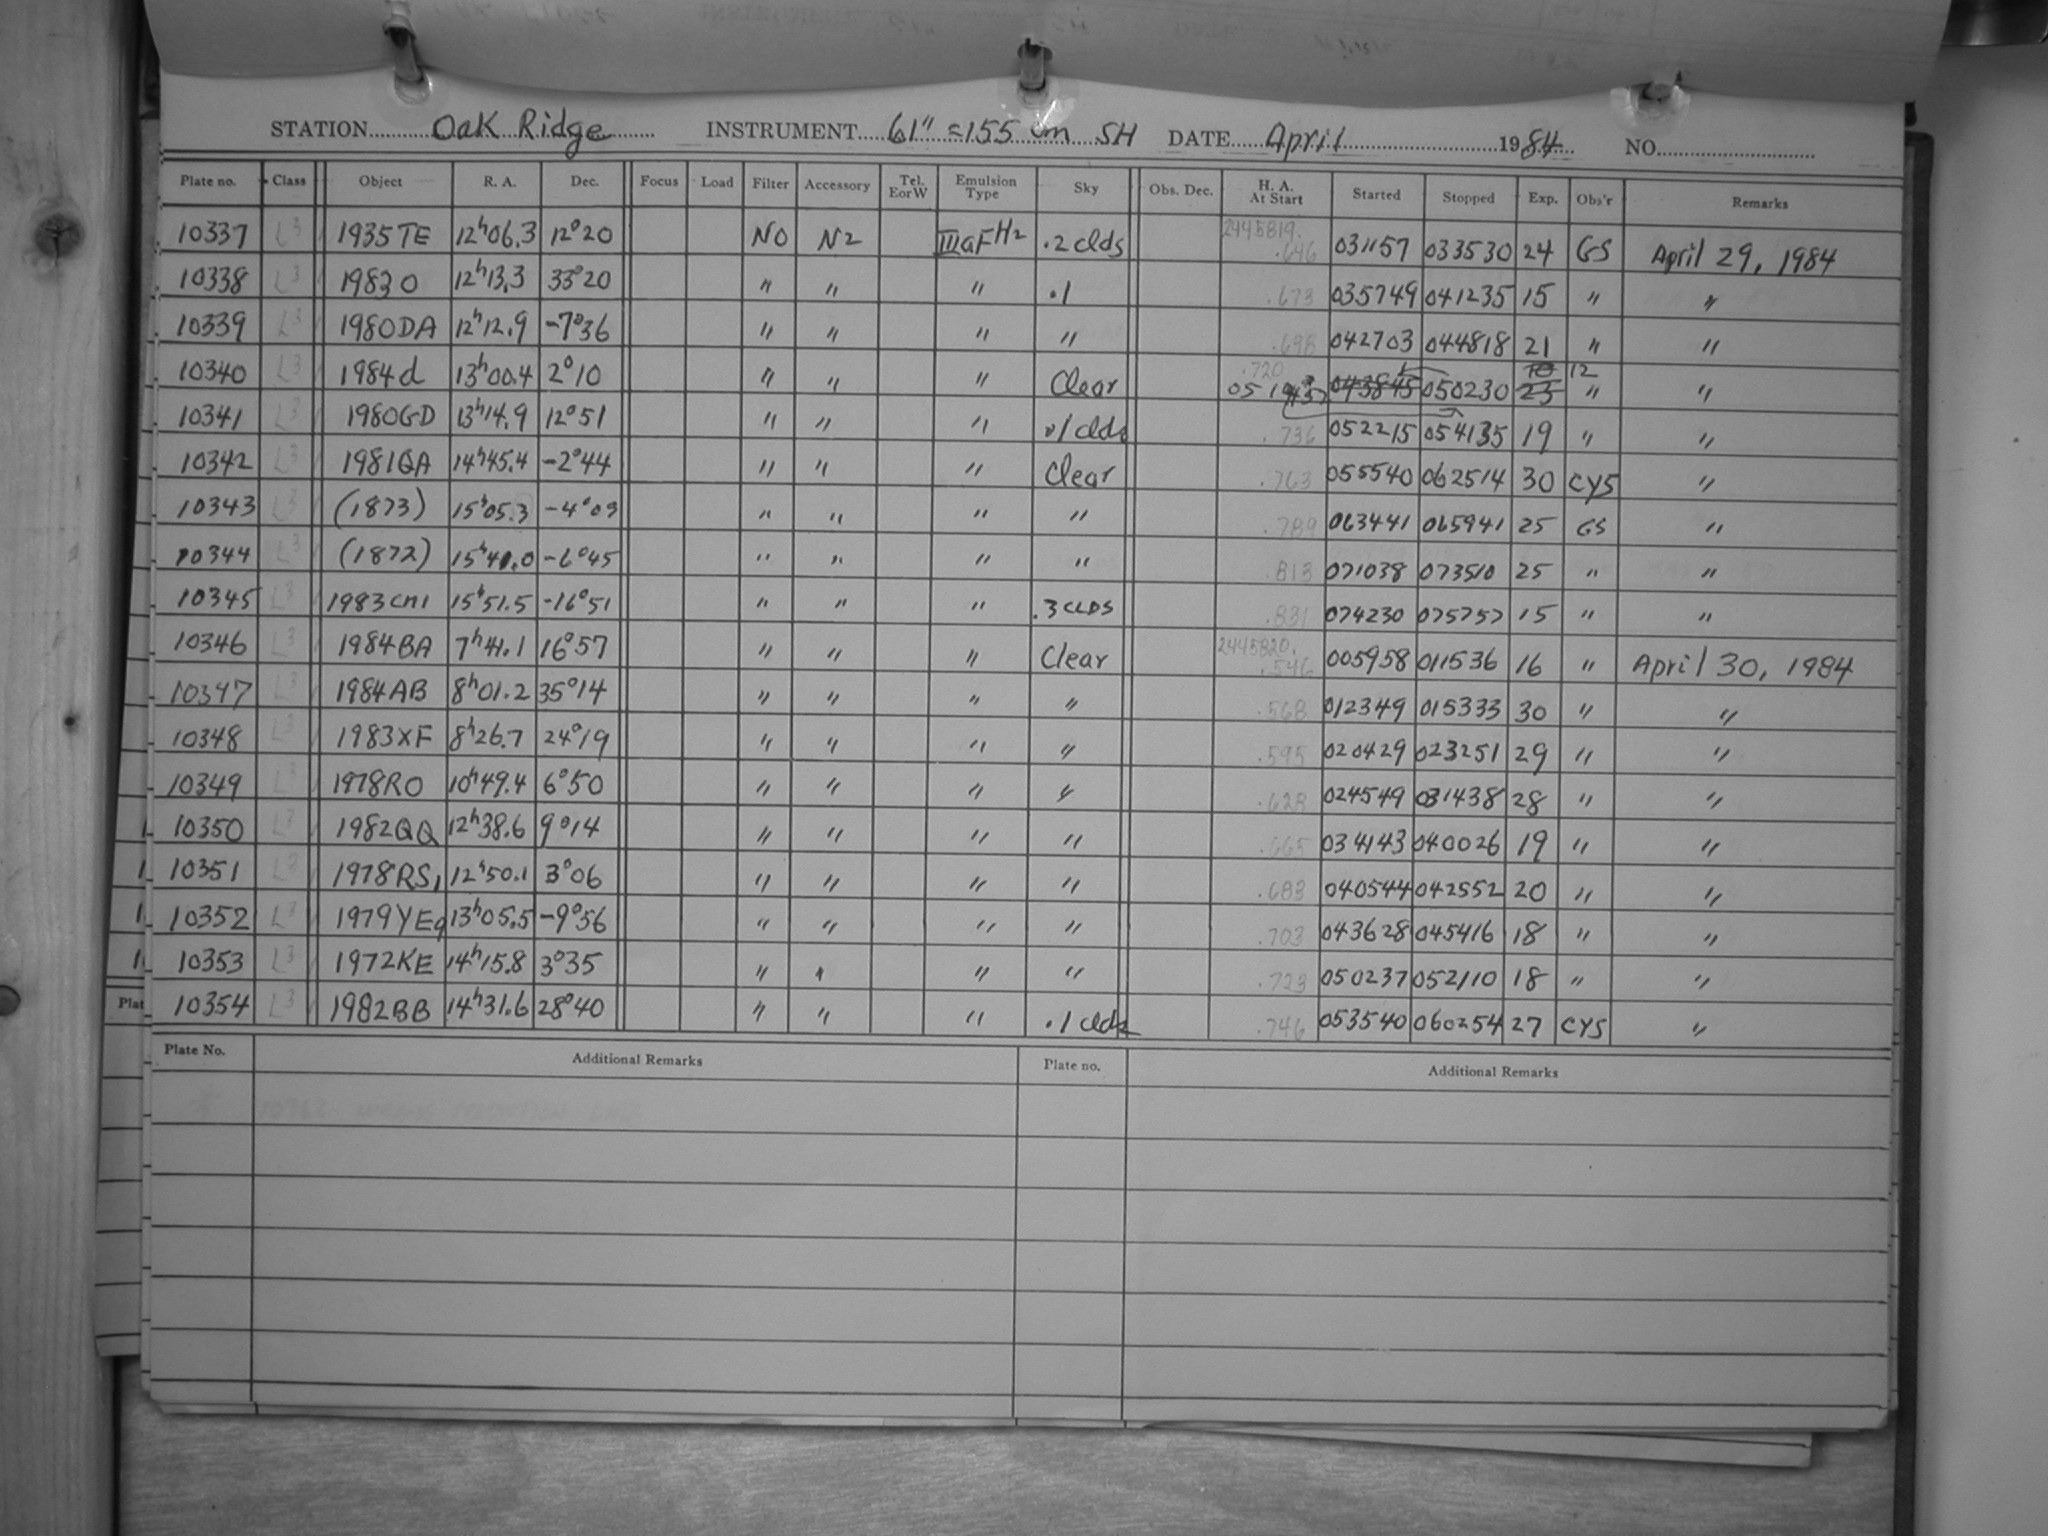 STATION Oak Ridge INSTRUMENT 61" = 155 cm SH DATE April 1984 NO.
Plate no. Class Object R. A. Dec. Focus Load Filter Accessory Tel. E or W Emulsion Type Sky Obs. Dec. H. A. At Start Started Stopped Exp. Obs'r Remarks
10337 L3 1935TE 12h06.3 12°20 NO N2 IIIaF H2 .2 clds 2445819. .646 031157 033530 24 GS April 29, 1984
10338 L3 1983 O 12h13.3 33°20 " " " .1 .673 035749 041235 15 " "
10339 L3 1980DA 12h12.9 -7°36 " " " " .698 042703 044818 21 " "
10340 L3 1984d 13h00.4 2°10 " " " Clear .720 043845 050230 12 " "
10341 L3 1980GD 13h14.9 12°51 " " " .1 clds .736 052215 054135 19 " "
10342 L3 1981QA 14h45.4 -2°44 " " " Clear .763 055540 062514 30 CYS "
10343 L3 (1873) 15h05.3 -4°09 " " " " .789 063441 065941 25 GS "
10344 L3 (1872) 15h41.0 -6°45 " " " " .813 071038 073510 25 " "
10345 L3 1983CM1 15h51.5 -16°51 " " " .3 CLDS .831 074230 075757 15 " "
10346 L3 1984BA 7h41.1 16°57 " " " Clear 2445820. .546 005958 011536 16 " April 30, 1984
10347 L3 1984AB 8h01.2 35°14 " " " " .568 012349 015333 30 " "
10348 L3 1983XF 8h26.7 24°19 " " " " .595 020429 023251 29 " "
10349 L3 1978RO 10h49.4 6°50 " " " " .628 024549 031438 28 " "
10350 L3 1982QQ 12h38.6 9°14 " " " " .665 034143 040026 19 " "
10351 L3 1978RS1 12h50.1 3°06 " " " " .683 040544 042552 20 " "
10352 L3 1979YE9 13h05.5 -9°56 " " " " .703 043628 045416 18 " "
10353 L3 1972KE 14h15.8 3°35 " " " " .723 050237 052110 18 " "
10354 L3 1982BB 14h31.6 28°40 " " " .1 clds .746 053540 060254 27 CYS "
Plate No. Additional Remarks Plate no. Additional Remarks